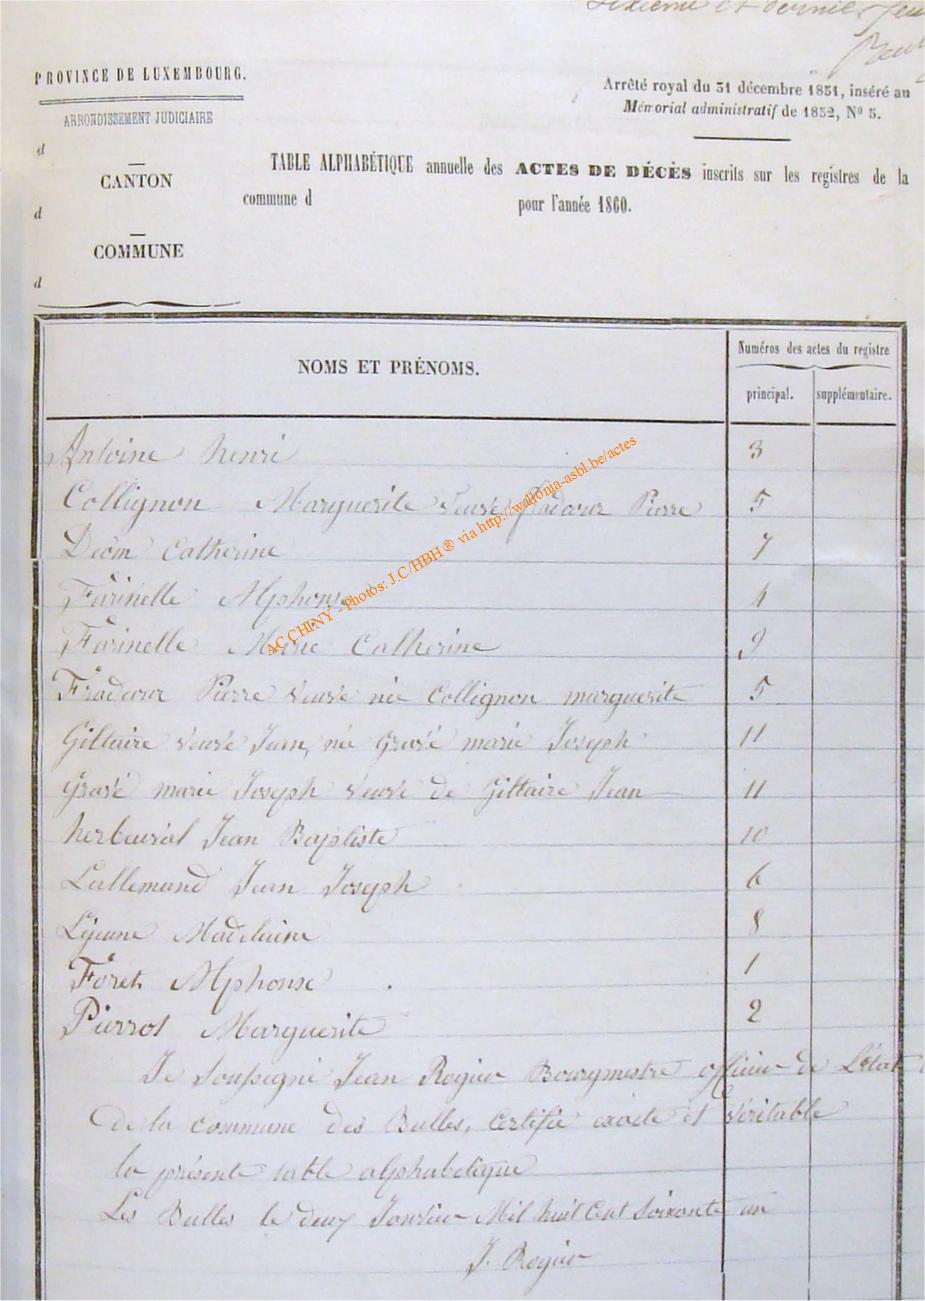 Sixième et dernier feu
PROVINCE DE LUXEMBOURG.
ARRONDISSEMENT JUDICIAIRE
d
CANTON
d
COMMUNE
d
Arrêté royal du 31 décembre 1851, inséré au
Mémorial administratif de 1852, N° 5.
TABLE ALPHABÉTIQUE annuelle des ACTES DE DÉCÈS inscrits sur les registres de la
commune d pour l'année 1860.
NOMS ET PRÉNOMS.
Numéros des actes du registre
principal. supplémentaire.
Antoine henri 3
Collignon Marguerite veuve fradcour Pierre 5
Diom Catherine 7
Farinelle Alphonse 4
Farinelle Marie Catherine 9
Fradcour Pierre veuve née Collignon marguerite 5
Giltaire veuve Jean, née Gravé marie Joseph 11
Gravé marie Joseph veuve de Giltaire Jean 11
herbeuval Jean Baptiste 10
Lallemand Jean Joseph 6
Lejeune Madelaine 8
Foret Alphonse 1
Pierrot Marguerite 2
Je Soussigné Jean Rogier Bourgmestre officier de L'état
de la Commune des Bulles, Certifie exacte et véritable
la présente table alphabetique
Les Bulles le deux Janvier Mil huit Cent Soixante un
J. Rogier
AC CHINY - Photos: J.C/HBH ® via http://wallonia-asbl.be/actes